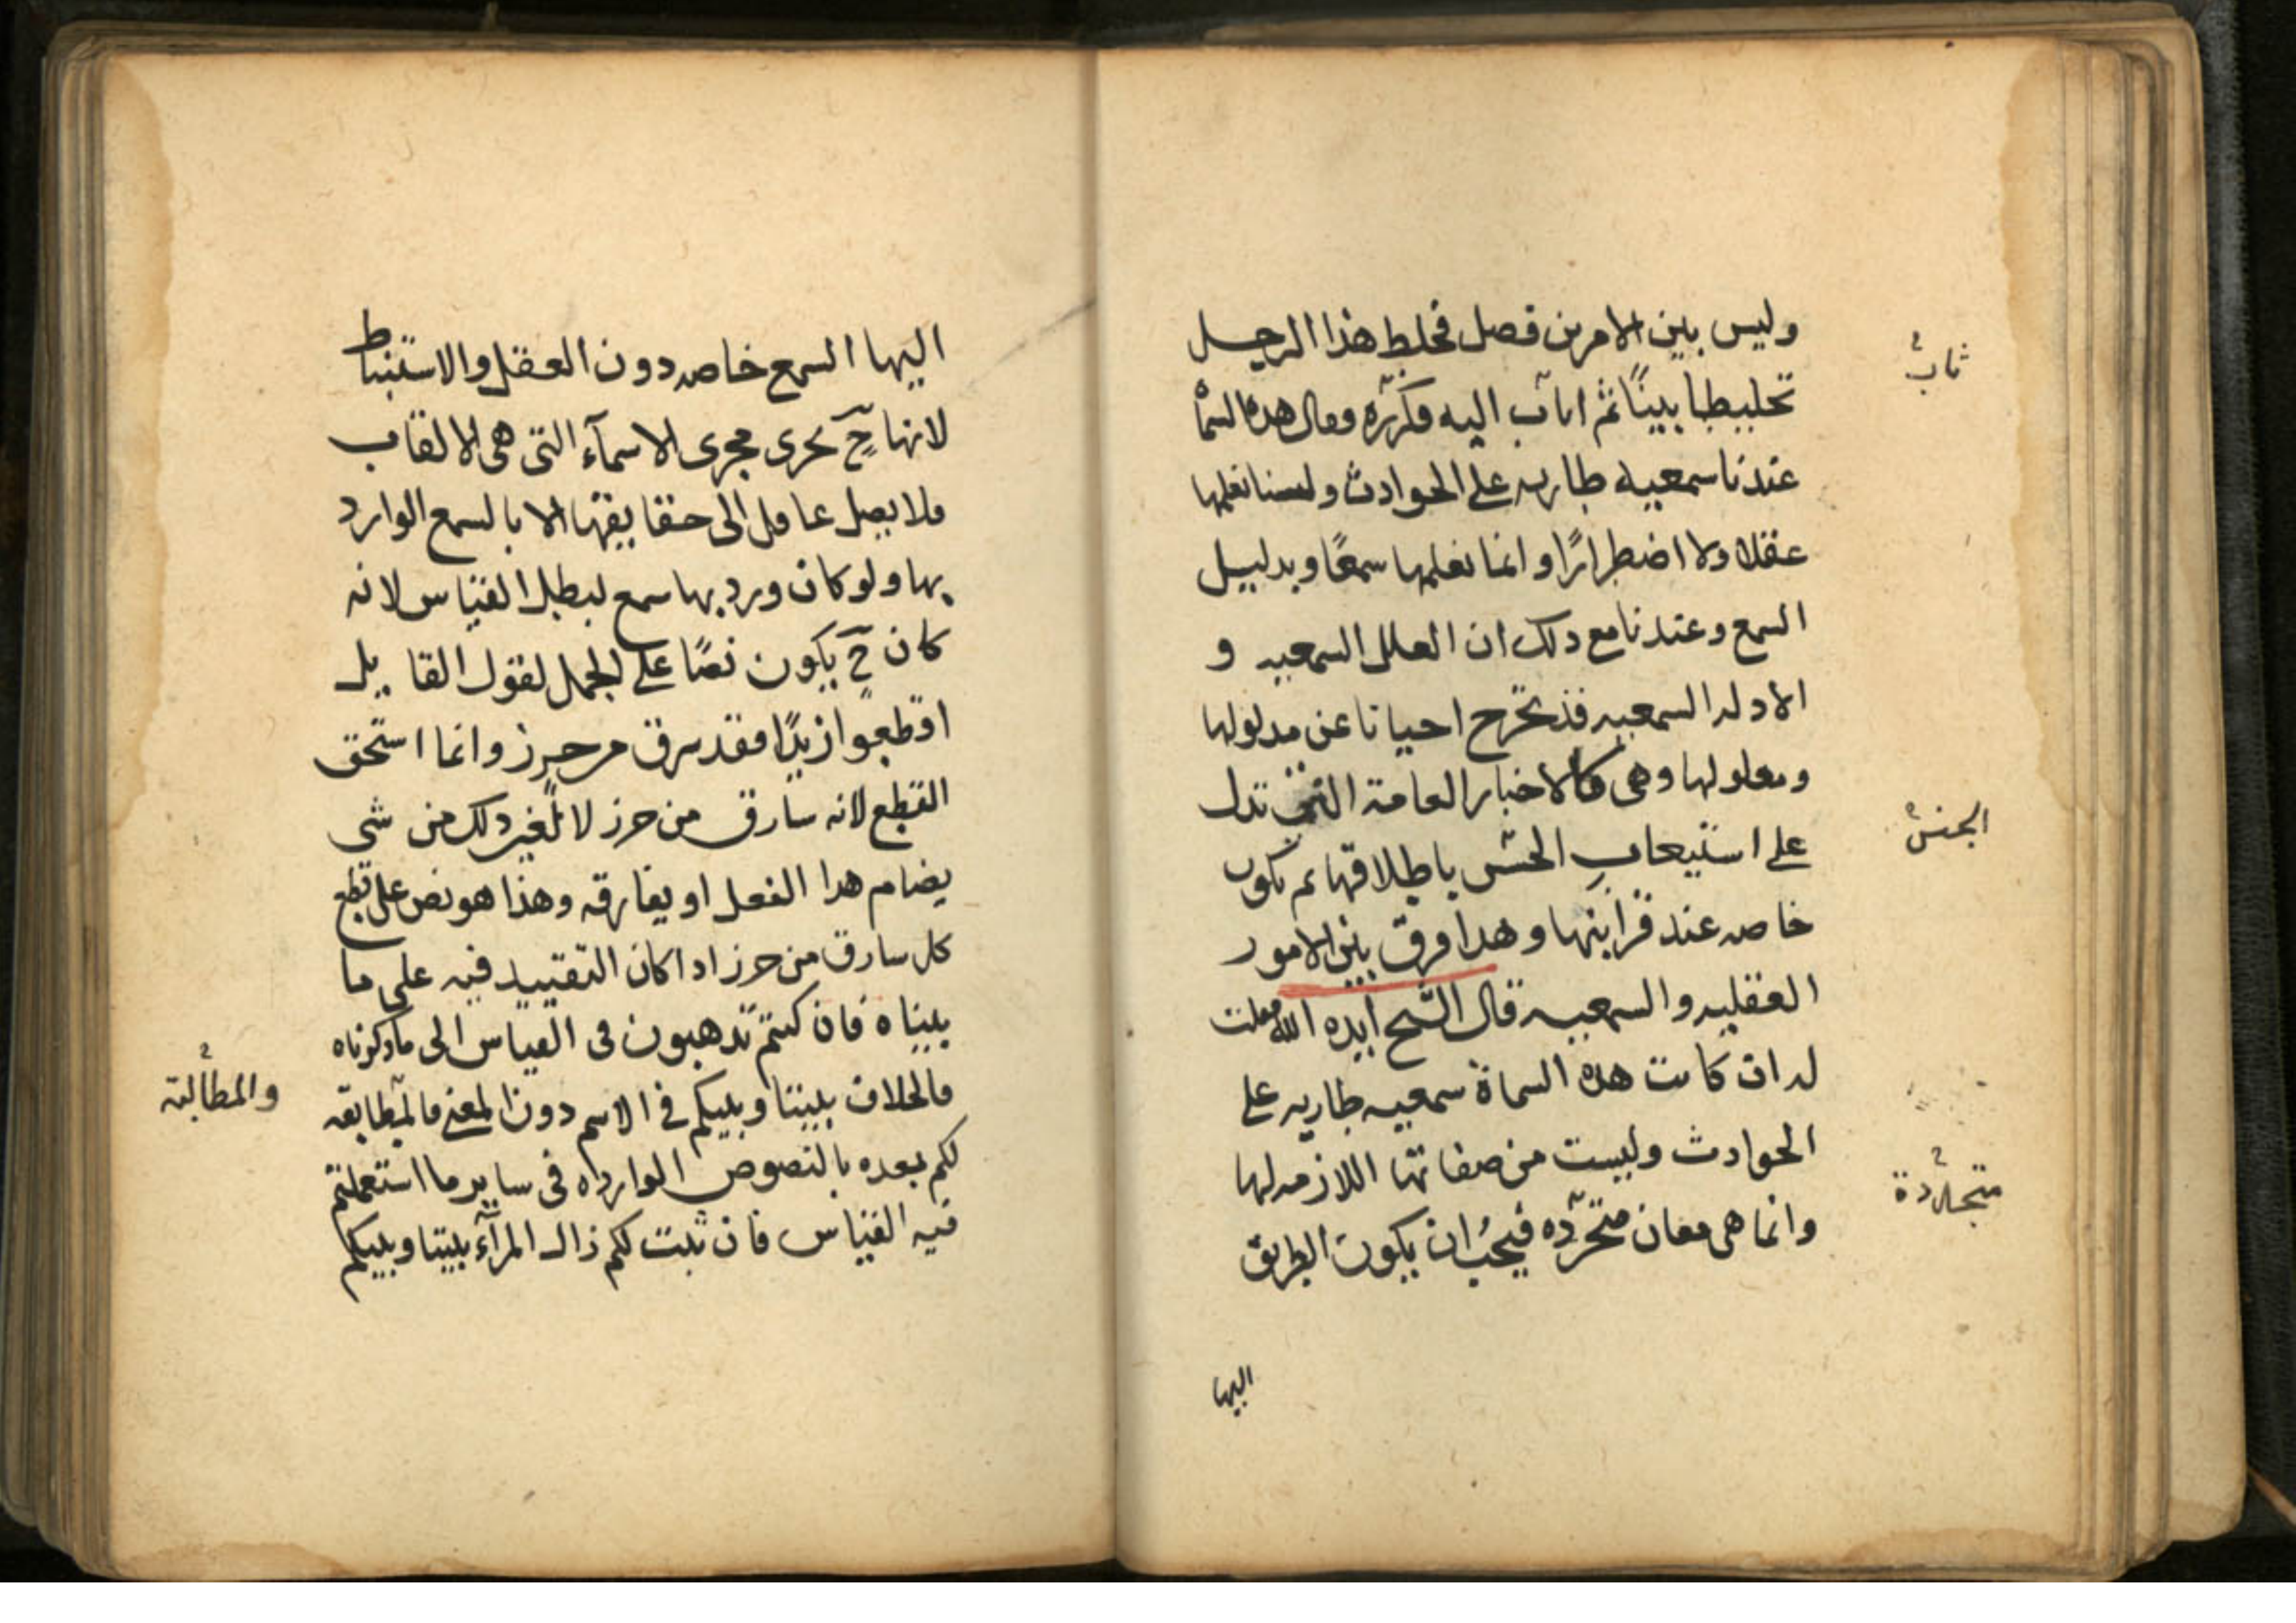 وليس بين الامرين فصل فخلط هذا الرجل
تخليطا بينًا ثم اناب اليه فكرّره وقال هذه السماة
عندنا سمعية طاريه على الحوادث ولسنا نعلمها
عقلا ولا اضطرارًا وانما نعلمها سمعًا وبدليل
السمع وعندنا مع ذلك ان العلل السمعيه و
الادله السمعيه قد تخرج احيانا عن مدلولها
ومعلولها وهى كالاخبار العامة التى تدل
على استيعاب الحبش باطلاقها ثم تكون
خاصه عند قرائنها وهذا فرق بين الامور
العقليه والسمعيه قال الشيخ ايده الله فقلت
له ان كانت هذه السماة سمعيه طاريه على
الحوادث وليست من صفاتها اللازمه لها
وانما هى معان متحرّده فيجب ان يكون الطريق
اليها
ثاب
الجنس
متجددة
اليها السمع خاصه دون العقل والاستنباط
لانها حٓ تجرى مجرى الاسمآء التى هى الالقاب
فلا يصل عاقل الى حقايقها الا بالسمع الوارد
بها ولو كان ورد بها سمع لبطل القياس لانه
كان حٓ يكون نصًا على الجمل لقول القايل
اقطعوا زيدًا فقد سرق من حرز وانما استحق
القطع لانه سارق من حرز لا لغير ذلك من شى
يضام هذا الفعل او يفارقه وهذا هو نص على قطع
كل سارق من حرز اذا كان التقييد فيه على ما
بيناه فان كنتم تذهبون فى القياس الى ما ذكرناه
فالخلاف بيننا وبينكم فى الاسم دون المعنى فالمطابقه
لكم بعده بالنصوص الوارداه فى ساير ما استعملتم
فيه القياس فان ثبت لكم زال المرآء بيننا وبينكم
والمطالبة